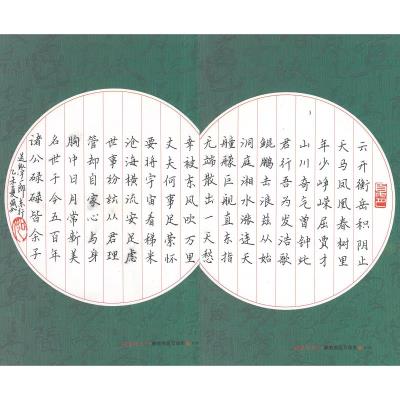 云开衡岳积阴止
天马凤凰春树里
年少峥嵘屈贾才
山川奇气曾钟此
君行吾为发浩歌
鲲鹏击浪从兹始
洞庭湘水涨连天
艟艨巨舰直东指
无端散出一天愁
幸被东风吹万里
丈夫何事足萦怀
要将宇宙看稊米
沧海横流安足虑
世事纷纭从君理
管却自家心与身
胸中日月常新美
名世于今五百年
诸公碌碌皆余子
送纵宇一郎东行